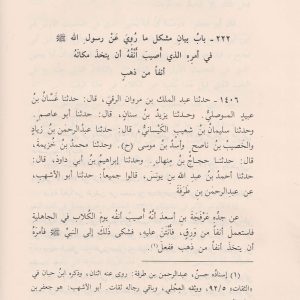 ٢٢٢ - بابُ بيانِ مشكل ما رُوِيَ عَنْ رسولِ الله ﷺ
في أمرِه الذي أُصيبَ أَنْفُه أن يتخذَ مكانَه
أنفاً من ذهبٍ
١٤٠٦ - حدثنا عبد الملك بن مروان الرقيُّ، قال: حدثنا غسَّانُ بنُ
عبيدٍ الموصليُّ. وحدثنا يزيدُ بنُ سنانٍ، قال: حدثنا أبو عاصم.
وحدثنا سليمانُ بنُ شعيبٍ الكَيْسَانيُّ، قال: حدثنا عبدُالرحمن بنُ زيادٍ
والخَصيبُ بنُ ناصحٍ وأسدُ بنُ موسى (ح). وحدثنا محمدُ بنُ خُزيمة،
قال: حدثنا حجاجُ بنُ مِنهالٍ. وحدثنا إبراهيمُ بنُ أبي داودَ، قال:
حدثنا أحمدُ بنُ عبد الله بن يونُسَ، قالوا جميعاً: حدثنا أبو الأشهبِ،
عن عبدِالرحمنِ بنِ طَرَفَةَ
عن جدِّه عَرْفَجَةَ بنِ أسعدَ أنَّه أُصيبَ أنفُه يومَ الكُلاب في الجاهلية
فاستعملَ أنفاً من وَرِقٍ، فأَنْتَنَ عليه، فشكى ذلك إلى النبيِّ ﷺ فأمرَهُ
أن يتخذَ أنفاً من ذهبٍ ففعلَ(١).
(١) إسناده حسن، عبدالرحمن بن طرفة: روى عنه اثنان، وذكره ابنُ حبان في
«الثقات» ٩٢/٥، ووثقه العجلي، وباقي رجاله ثقات. أبو الأشهب: هو جعفر بن